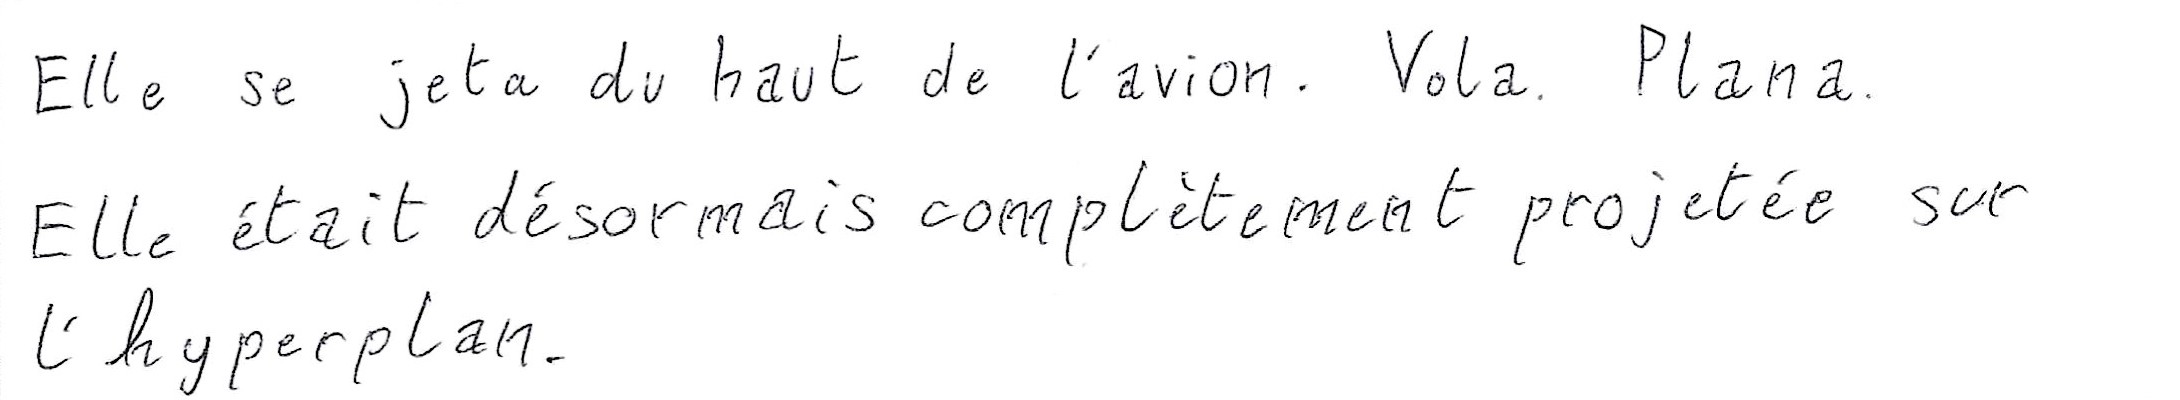 Elle se jeta du haut de l'avion. Vola. Plana.
Elle était désormais complètement projetée sur
l'hyperplan.